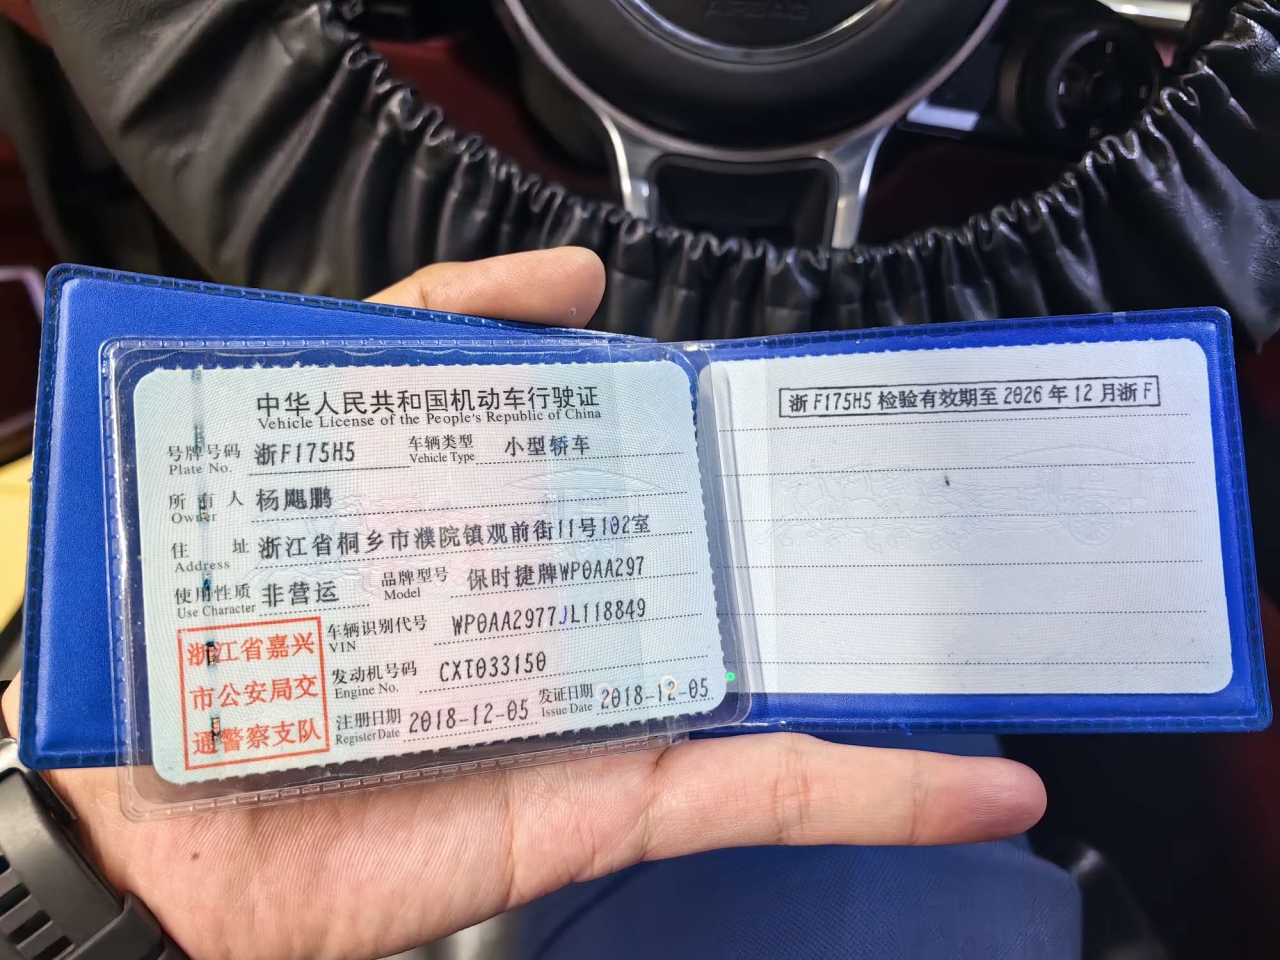 AIRBAG
中华人民共和国机动车行驶证
Vehicle License of the People's Republic of China
号牌号码 浙F175H5 车辆类型 小型轿车
Plate No. Vehicle Type
所有人 杨飓鹏
Owner
住址 浙江省桐乡市濮院镇观前街11号102室
Address
使用性质 非营运 品牌型号 保时捷牌WP0AA297
Use Character Model
车辆识别代号 WP0AA2977JL118849
VIN
发动机号码 CXT033150
Engine No.
注册日期 2018-12-05 发证日期 2018-12-05
Register Date Issue Date
浙江省嘉兴
市公安局交
通警察支队
浙F175H5检验有效期至2026年12月浙F